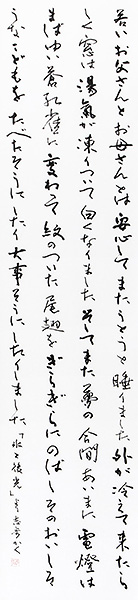 若いお父さんとお母さんとは安心してまたうとうと睡りました外が冷えて来たらし
く窓は湯気が凍りついて白くなりましたそしてまた夢の合間あいまに電燈は
まばゆい蒼孔雀に変わって紋のついた尾翅をぎらぎらにのばしそのおいしそ
うなこどもをたべたそうにしたり大事そうにしたりしました「氷と後光」